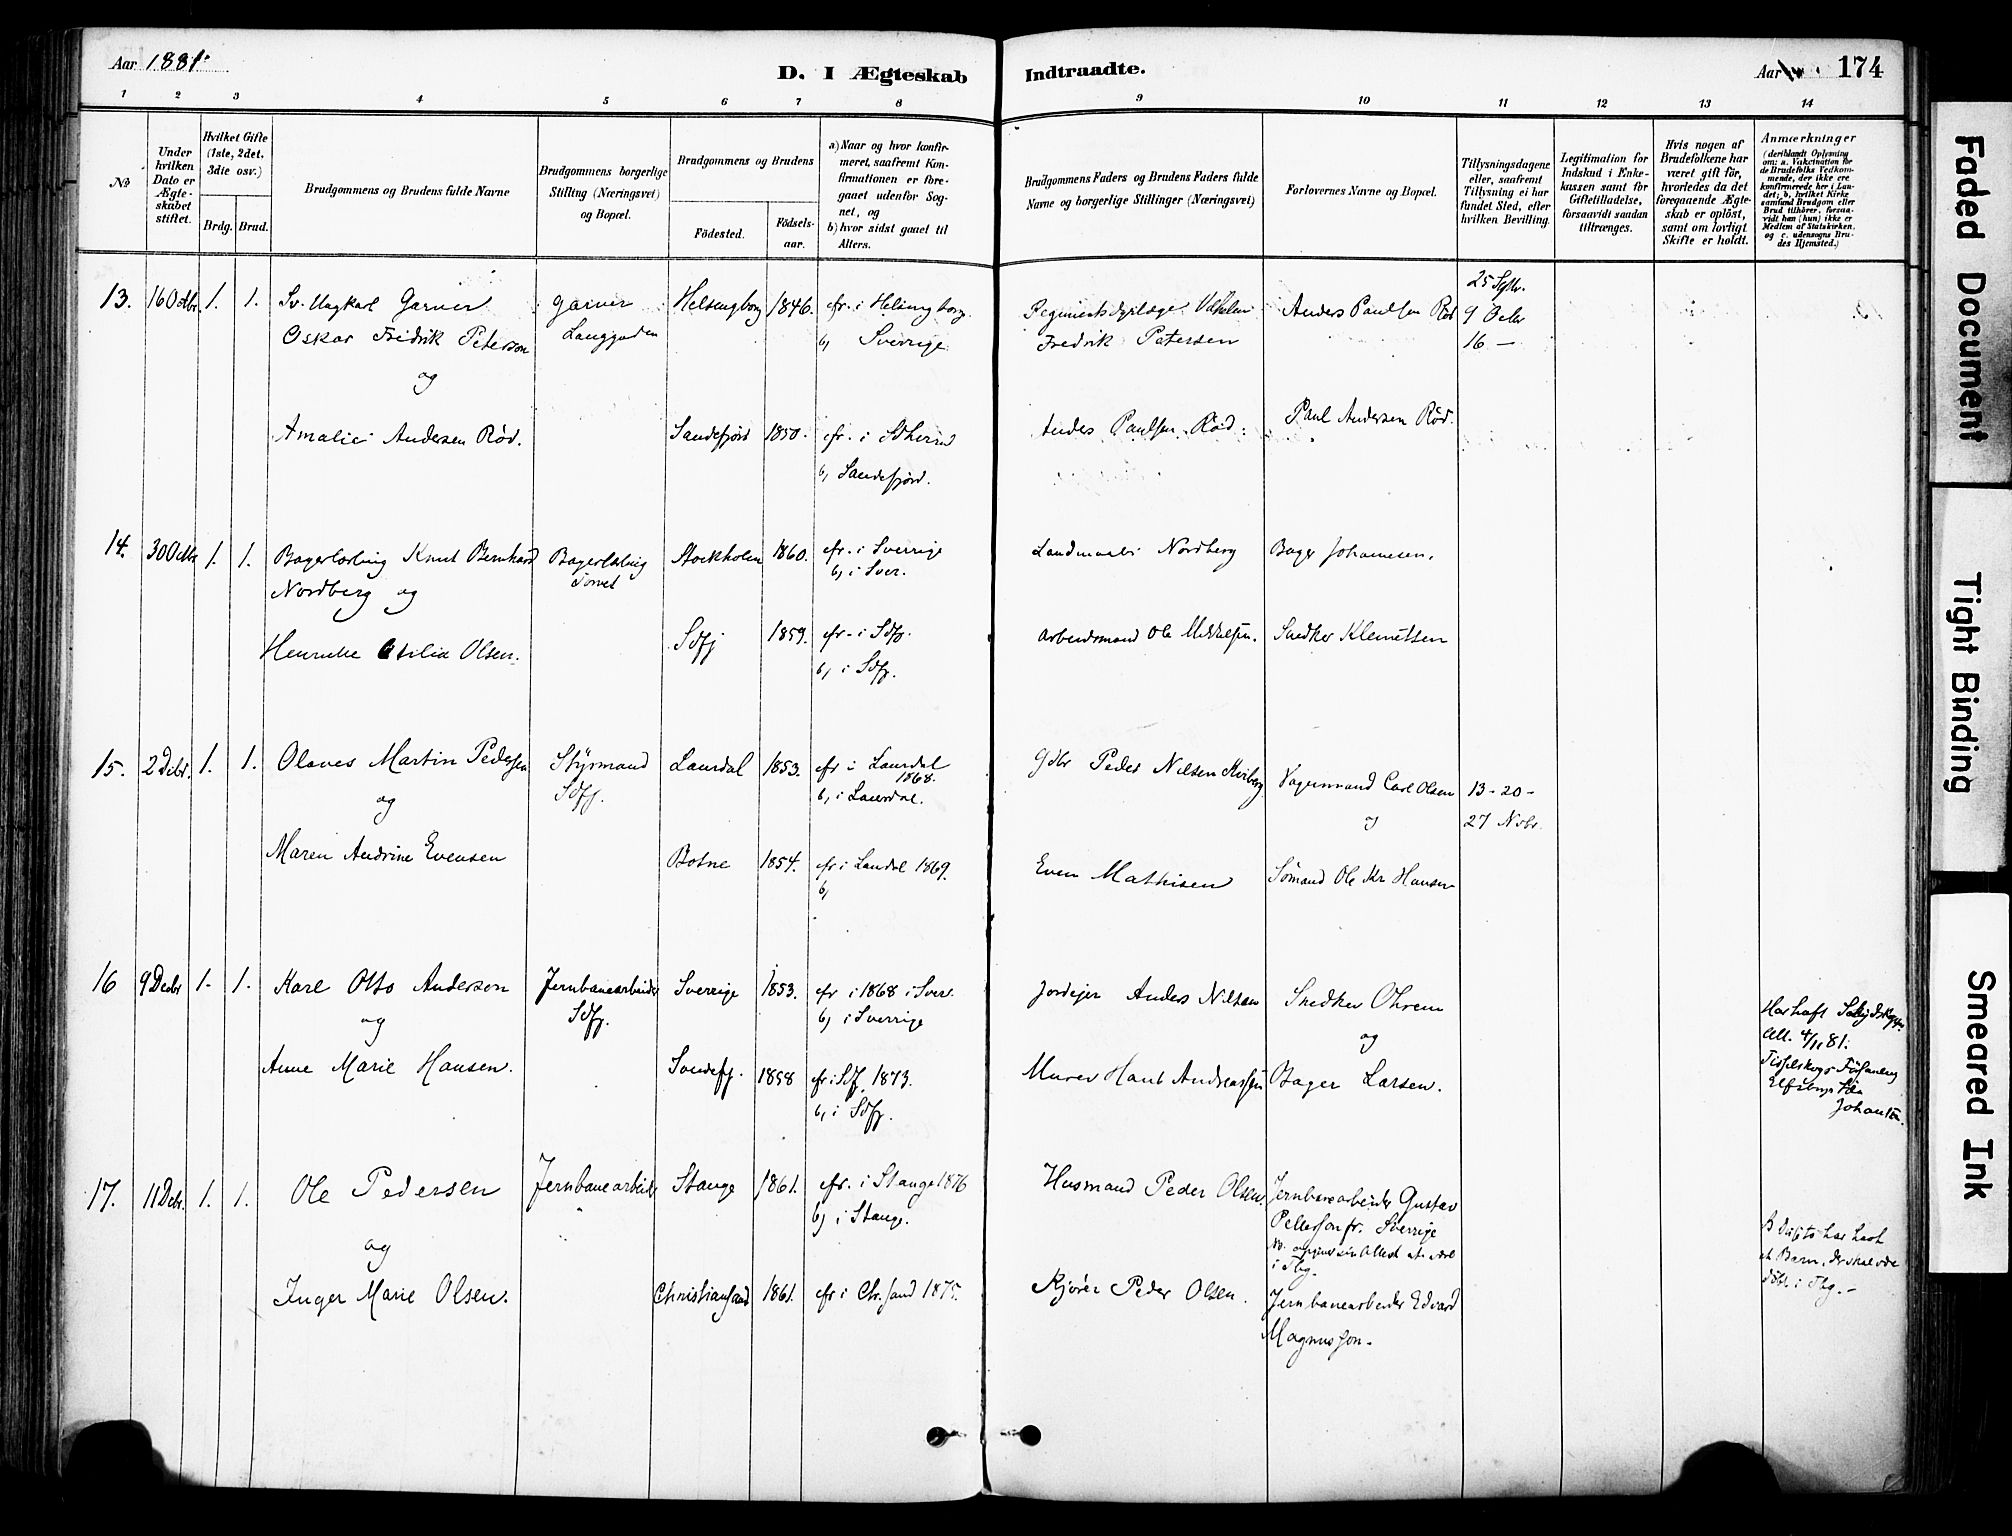 Aar 1881.
D. I Ægteskab
Indtraadte.
Aar 174
1 2 3 4 5 6 7 8 9 10 11 12 13 14
No
Under hvilken Dato er Ægteskabet stiftet.
Hvilket Gifte (1ste, 2det, 3die osv.)
Brdg. Brud.
Brudgommens og Brudens fulde Navne
Brudgommens borgerlige Stilling (Næringsvei) og Bopæl.
Brudgommens og Brudens
Födested.
Födselsaar.
a) Naar og hvor konfirmeret, saafremt Konfirmationen er foregaaet udenfor Sognet, og
b) hvor sidst gaaet til Alters.
Brudgommens Faders og Brudens Faders fulde Navne og borgerlige Stillinger (Næringsvei)
Forlovernes Navne og Bopæl.
Tillysningsdagene eller, saafremt Tillysning ei har fundet Sted, efter hvilken Bevilling.
Legitimation for Indskud i Enkekassen samt for Giftetilladelse, forsaavidt saadan tiltrænges.
Hvis nogen af Brudefolkene har været gift før, hvorledes da det foregaaende Ægteskab er opløst, samt om lovligt Skifte er holdt.
Anmærkninger
(deriblandt Oplysning om: a. Vakcination for de Brudefolks Vedkommende, der ikke ere konfirmerede her i Landet; b. hvilket Kirkesamfund Brudgom eller Brud tilhører, forsaavidt han (hun) ikke er Medlem af Statskirken, og c. udensogns Brudes Hjemsted.)
13. 16 Octbr. 1. 1. Sv. Ungkarl Garver garver Helsingborg 1846. cfr. i Helsingborg
Oskar Fredrik Peterson Langgaden b, Sverrige
og
Fredrik Petersen
Anders Paulsen Rød
25 Sptbr.
9 Octbr
16 —
Amalie Andersen Rød. Sandefjord 1850. cfr. i
b, Sandefjord.
Anders Paulsen Rød. Paul Andersen Rød.
14. 30 Octbr 1. 1. Bagerlærling Knut Bernhard Bagerlærling Stockholm 1860. cfr. i Sverrige
Nordberg og Torvet b, i Sver.
Landmaaler Nordberg Bager Johannesen.
Henrikke Otilia Olsen. Sdfj 1859. cfr. i Sdfj.
b, i Sdfj.
Arbeidsmand Ole Mikkelsen. Snedker Klemetsen
15. 2 Decbr. 1. 1. Olaves Martin Pedersen Styrmand Laurdal 1853. cfr i Laurdal
og Sdfj. 1868.
b, i Laurdal.
Gdbr Peder Nilsen Vognmand Carl Olsen 13-20-
og 27 Novbr.
Maren Andrine Evensen Botne 1854. cfr i Laurdal 1869.
b,
Even Mathisen Sømand Ole Kr Hansen
16 9 Decbr 1. 1. Karl Otto Anderson Jernbanearbeider Sverrige 1853. cfr i 1868 i Sver.
og Sdfj. b, i Sverrige
Jordejer Anders Nilsson Snedker Ohrem
og
Anne Marie Hansen. Sandefj. 1858 cfr i Sdfj. 1873.
b, i Sdfj.
Murer Hans Andreassen Bager Larsen.
Har havt
Att. 4/11 81.
Johanson.
17. 11 Decbr. 1. 1. Ole Pedersen Jernbanearbeider Stange 1861. cfr. i Stange 1876
b, i Stange.
og
Husmand Peder Olsen. Jernbanearbeider Gustav
Petterson fr. Sverrige
i Tbg.
Inger Marie Olsen. Christiansand 1861. cfr i Chr.sand 1875.
Kjører Peder Olsen. Jernbanearbeider Edvard
Magnusson.
har havt
et Barn, der skal være
døbt i Tbg. –
Faded Document
Tight Binding
Smeared Ink